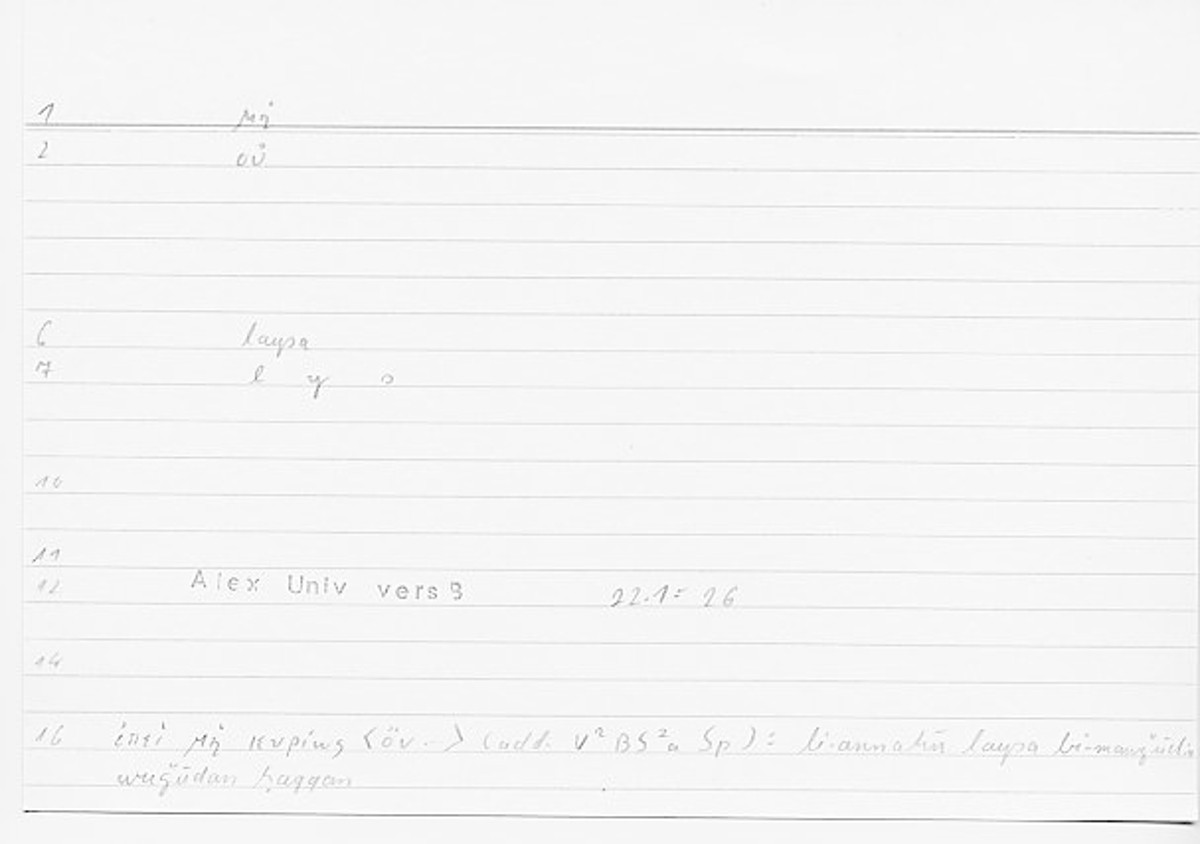 1 μή
2 οὐ
6 laysa
7 l y s
10
11
12 Alex Univ vers B 22.1 = 26
14
16 ἐπεὶ μὴ κυρίως <ὄν.> (add. V²BS²a Sp) : li-annahū laysa bi-mawǧūdin
wuǧūdan ḥaqqan